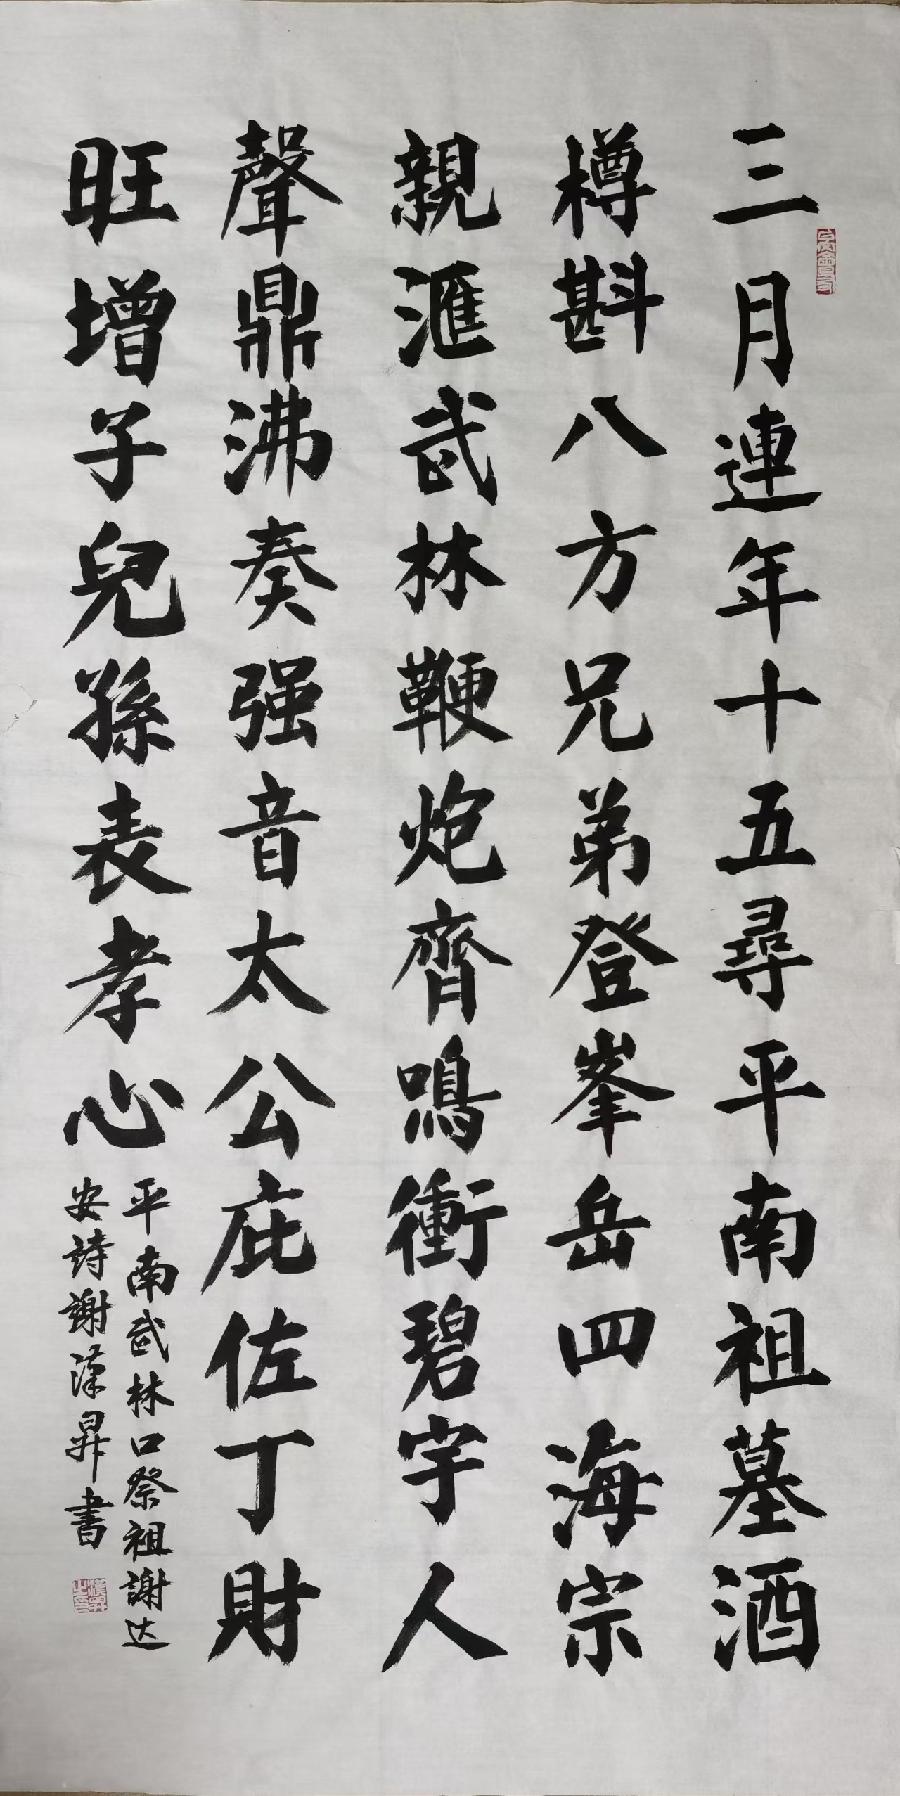 三月連年十五尋平南祖墓酒
樽斟八方兄弟登峯岳四海宗
親滙武林鞭炮齊鳴衝碧宇人
聲鼎沸奏强音太公庇佐丁財
旺增子兒孫表孝心
平南武林口祭祖謝达
安詩謝漢昇書